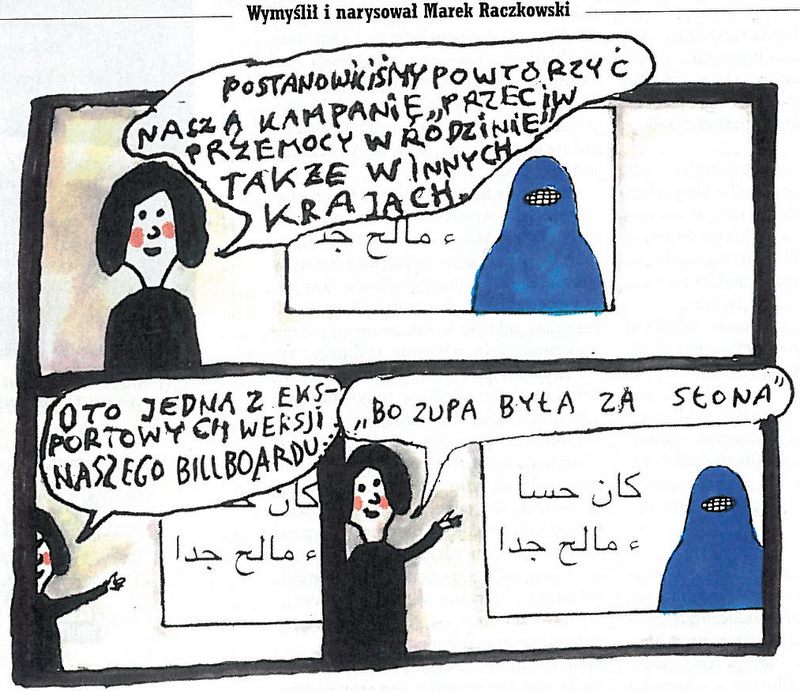 Wymyślił i narysował Marek Raczkowski
POSTANOWILIŚMY POWTÓRZYĆ
NASZĄ KAMPANIĘ „PRZECIW
PRZEMOCY W RODZINIE"
TAKŻE W INNYCH
KRAJACH.
ء مالح جد
OTO JEDNA Z EKS-
PORTOWYCH WERSJI
NASZEGO BILLBOARDU...
كان حس
ء مالح جدا
„BO ZUPA BYŁA ZA SŁONA"
كان حسا
ء مالح جدا